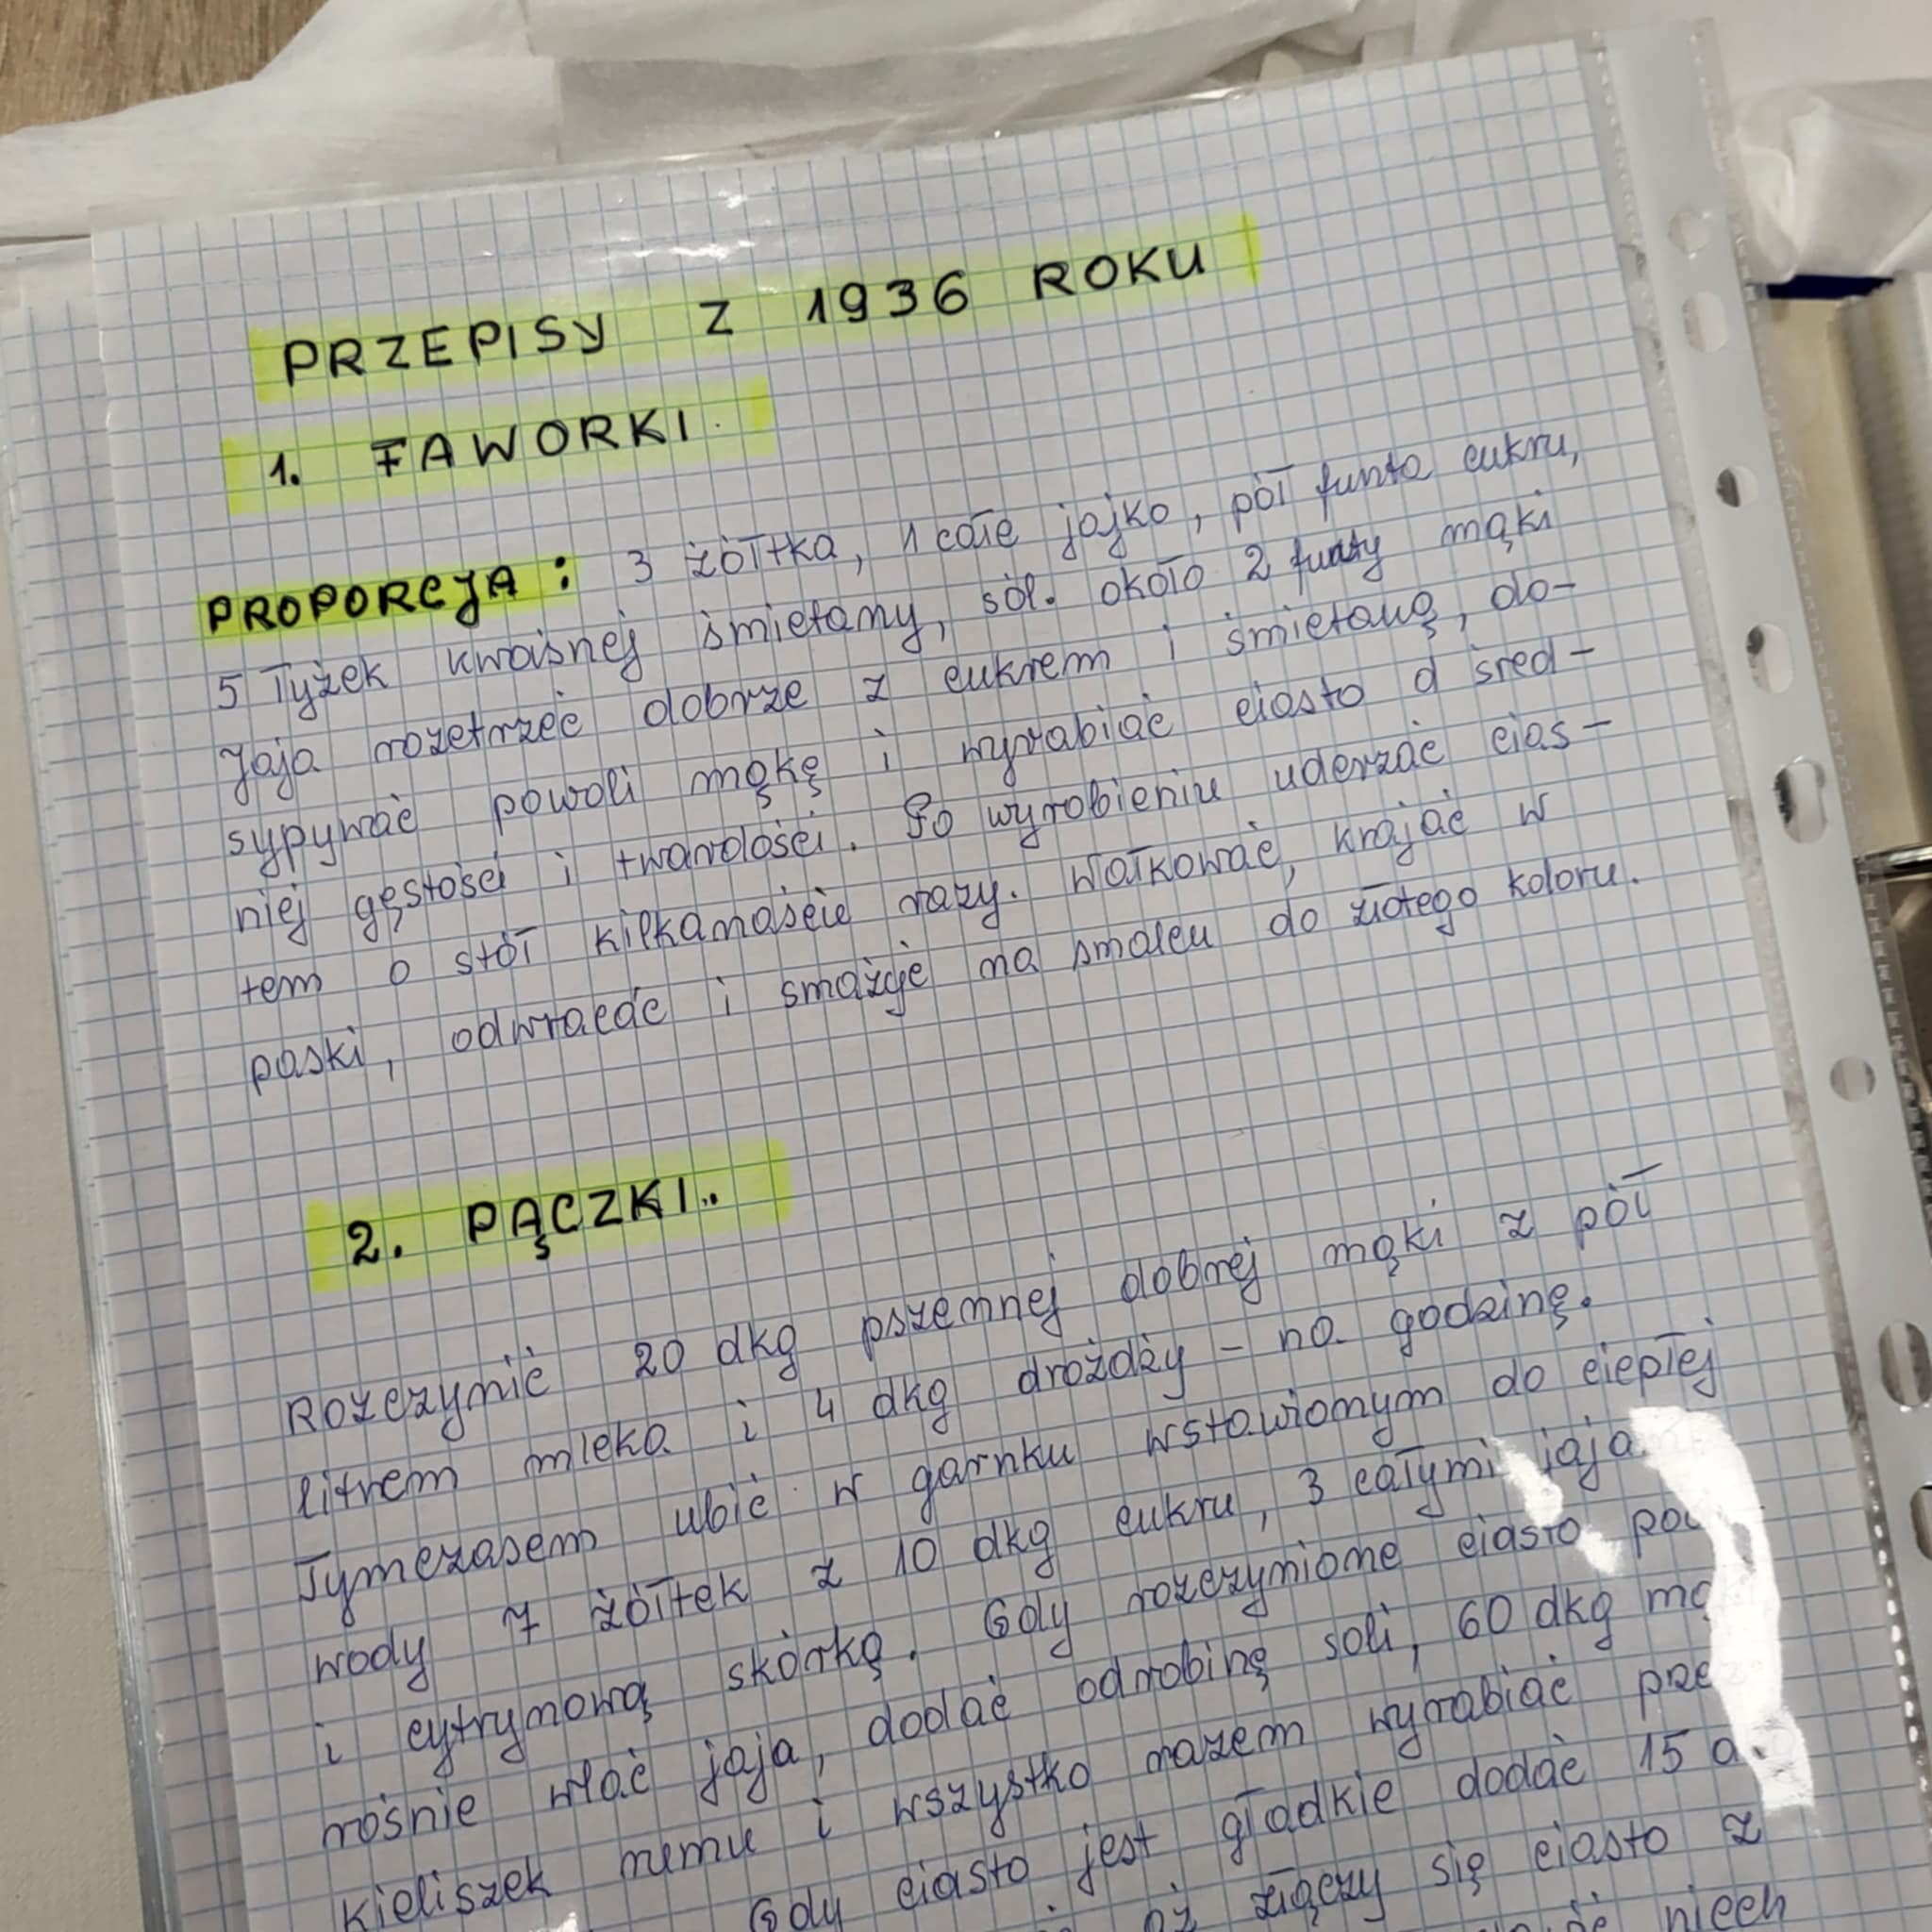 PRZEPISY Z 1936 ROKU
1. FAWORKI.
PROPORCJA: 3 żółtka, 1 całe jajko, pół funta cukru,
5 łyżek kwaśnej śmietany, sól. około 2 funty mąki
Jaja rozetrzeć dobrze z cukrem i śmietaną, do-
sypywać powoli mąkę i wyrabiać ciasto o śred-
niej gęstości i twardości. Po wyrobieniu uderzać cias-
tem o stół kilkanaście razy. Wałkować, krajać w
paski, odwracać i smażyć na smalcu do złotego koloru.
2. PĄCZKI..
Rozczynić 20 dkg pszennej dobrej mąki z pół
litrem mleka i 4 dkg drożdży - na godzinę.
Tymczasem ubić w garnku wstawionym do ciepłej
wody 7 żółtek z 10 dkg cukru, 3 całymi
i cytrynową skórką. Gdy rozczynione ciasto
rośnie wlać jaja, dodać odrobinę soli, 60 dkg
kieliszek rumu i wszystko razem wyrabiać
Gdy ciasto jest gładkie dodać 15
złączy się ciasto z
niech